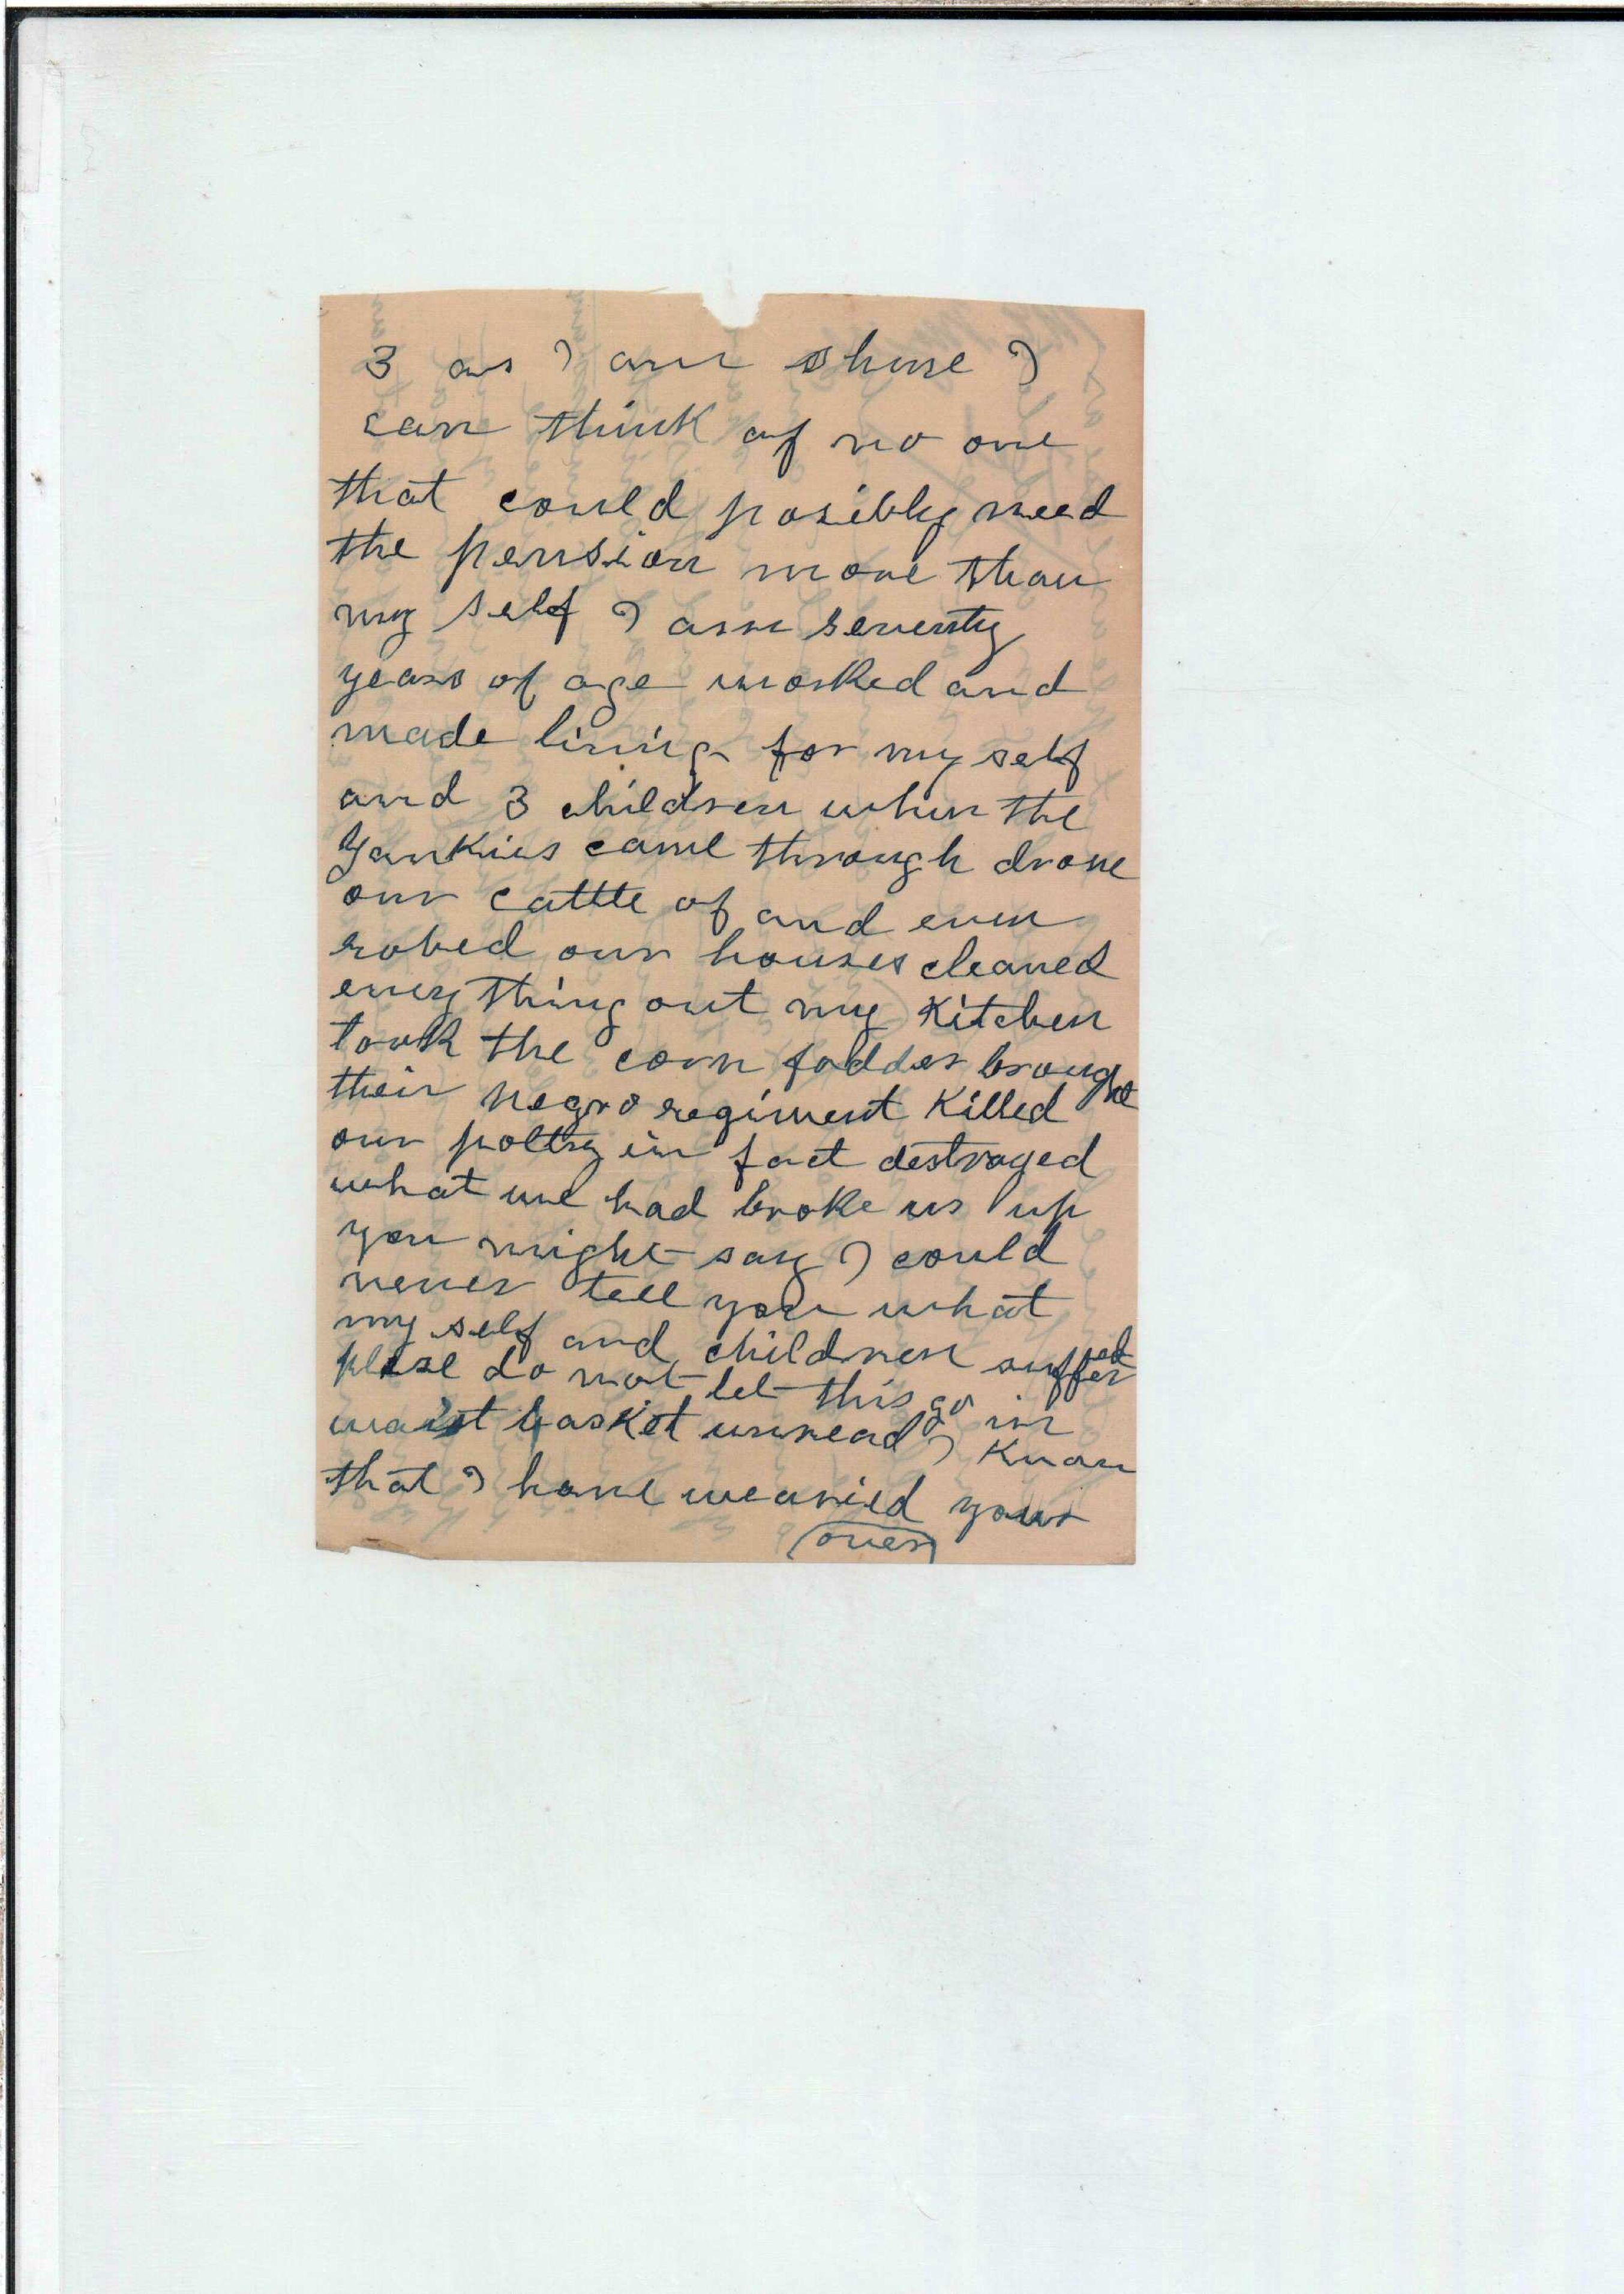 3 as I am shure I
can think of no one
that could posibly need
the pension more than
my self I am seventy
years of age worked and
made living for my self
and 3 children when the
Yankies came through drove
our cattle of and even
robed our houses cleaned
every thing out my Kitchen
took the corn fodder brought
their negro regiment Killed
our poltry in fact destroyed
what we had broke us up
you might say I could
never tell you what
my self and children suffered
please do not let this go in
waist basket unread I Know
that I have wearied your
(over)